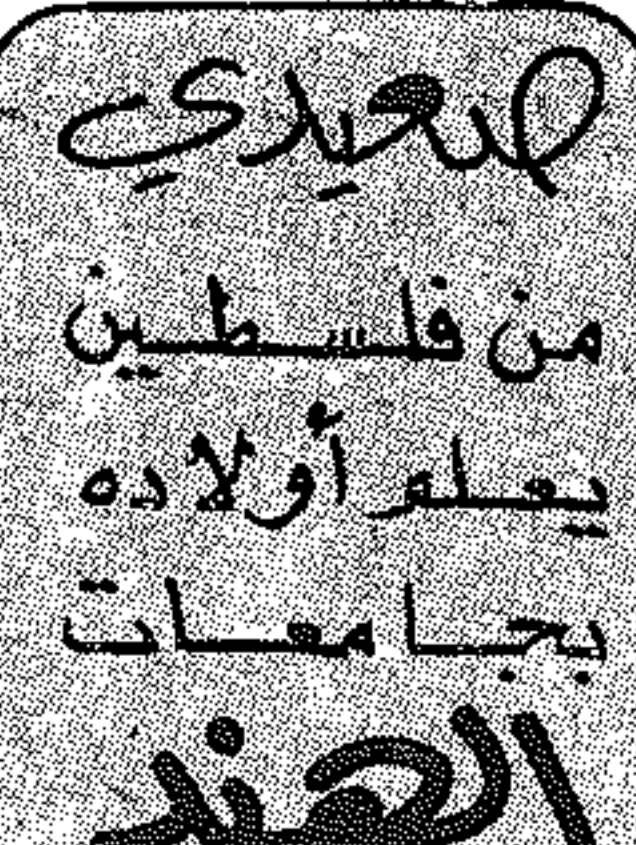 صعيدى
من فلسطين
يعلم أولاده
بجامعات
الهند